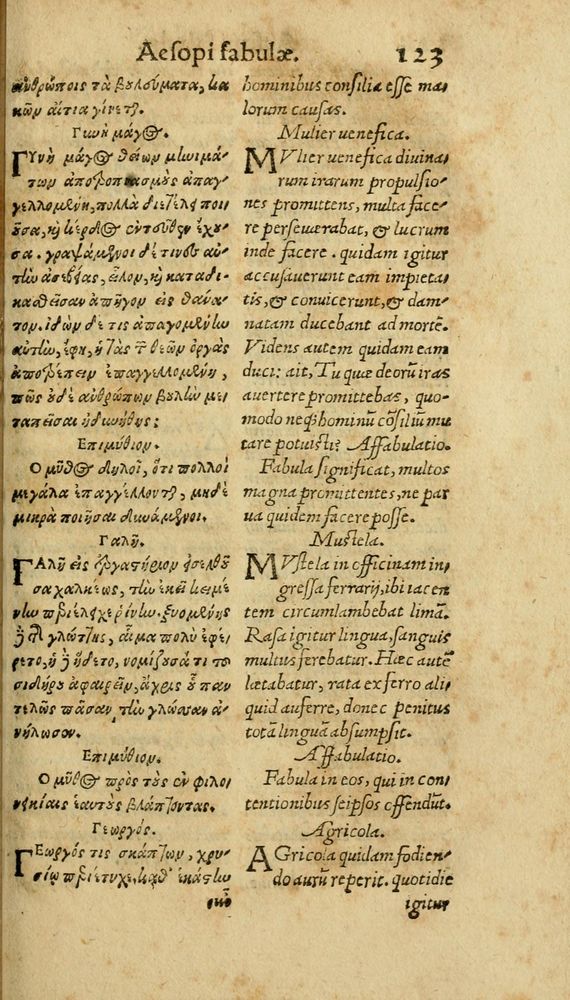 Aesopi fabulæ. 123
ἀνθρώποις τὰ βουλεύματα, κα
κῶν αἴτια γίνεται.
Γυνὴ μάγος.
ΓΥνὴ μάγος θείων μηνιμά-
των ἀποτροπιασμοὺς ἀπαγ-
γελλομένη, πολλὰ διετέλει ποι
οῦσα, καὶ κέρδος ἐντεῦθεν ἔχου-
σα. γραψάμενοι δέ τινες αὐ-
τὴν ἀσεβείας, εἷλον, καὶ καταδι-
κασθεῖσαν ἀπῆγον εἰς θάνα-
τον. ἰδὼν δέ τις ἀπαγομένην
αὐτὴν, ἔφη, ἡ τὰς τῶν θεῶν ὀργὰς
ἀποτρέπειν ἐπαγγελλομένη,
πῶς οὐδὲ ἀνθρώπων βουλὴν με-
ταπεῖσαι ἠδυνήθης;
Επιμύθιον.
Ο μῦθος δηλοῖ, ὅτι πολλοὶ
μεγάλα ἐπαγγέλλονται, μηδὲ
μικρὰ ποιῆσαι δυνάμενοι.
Γαλῆ.
ΓΑλῆ εἰς ἐργαστήριον εἰσελθοῦ
σα χαλκέως, τὴν ἐκεῖ κειμέ-
νην περιέλειχε ῥίνην. ξυομένης
δὲ τῆς γλώττης, αἷμα πολὺ ἐφέ-
ρετο, ἡ δὲ ἥδετο, νομίζουσά τι τοῦ
σιδήρου ἀφαιρεῖν, ἄχρις οὗ παν
τελῶς πᾶσαν τὴν γλῶσσαν ἀ-
νήλωσεν.
Επιμύθιον.
Ο μῦθος πρὸς τοὺς ἐν φιλο-
νεικίαις ἑαυτοὺς βλάπτοντας.
Γεωργός.
ΓΕωργός τις σκάπτων, χρυ-
σίῳ περιέτυχε, καθ' ἑκάστην
οὖν
hominibus consilia esse ma-
lorum causas.
Mulier uenefica.
MVlier uenefica diuina-
rum irarum propulsio-
nes promittens, multa face-
re perseuerabat, & lucrum
inde facere. quidam igitur
accusauerunt eam impieta-
tis, & conuicerunt, & dam-
natam ducebant ad mortē.
Videns autem quidam eam
duci: ait, Tu quæ deorū iras
auertere promittebas, quo-
modo neqʒ hominū cōsiliū mu
tare potuisti? Affabulatio.
Fabula significat, multos
magna promittentes, ne par
ua quidem facere posse.
Mustela.
MVstela in officinam in-
gressa ferrarij, ibi iacen
tem circumlambebat limā.
Rasa igitur lingua, sanguis
multus ferebatur. Hæc autē
lætabatur, rata ex ferro ali-
quid auferre, donec penitus
totā linguā absumpsit.
Affabulatio.
Fabula in eos, qui in con-
tentionibus seipsos offendūt.
Agricola.
AGricola quidam fodien-
do aurū reperit. quotidie
igitur